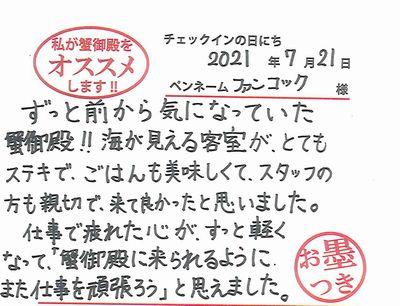 私が蟹御殿を
オススメ
します!!
チェックインの日にち
2021 年 7 月 21 日
ペンネーム ファンコック 様
ずっと前から気になっていた
蟹御殿!! 海が見える客室が、とても
ステキで、ごはんも美味しくて、スタッフの
方も親切で、来て良かったと思いました。
仕事で疲れた心が、すっと軽く
なって、「蟹御殿に来られるように
また仕事を頑張ろう」と思えました。
お墨
つき